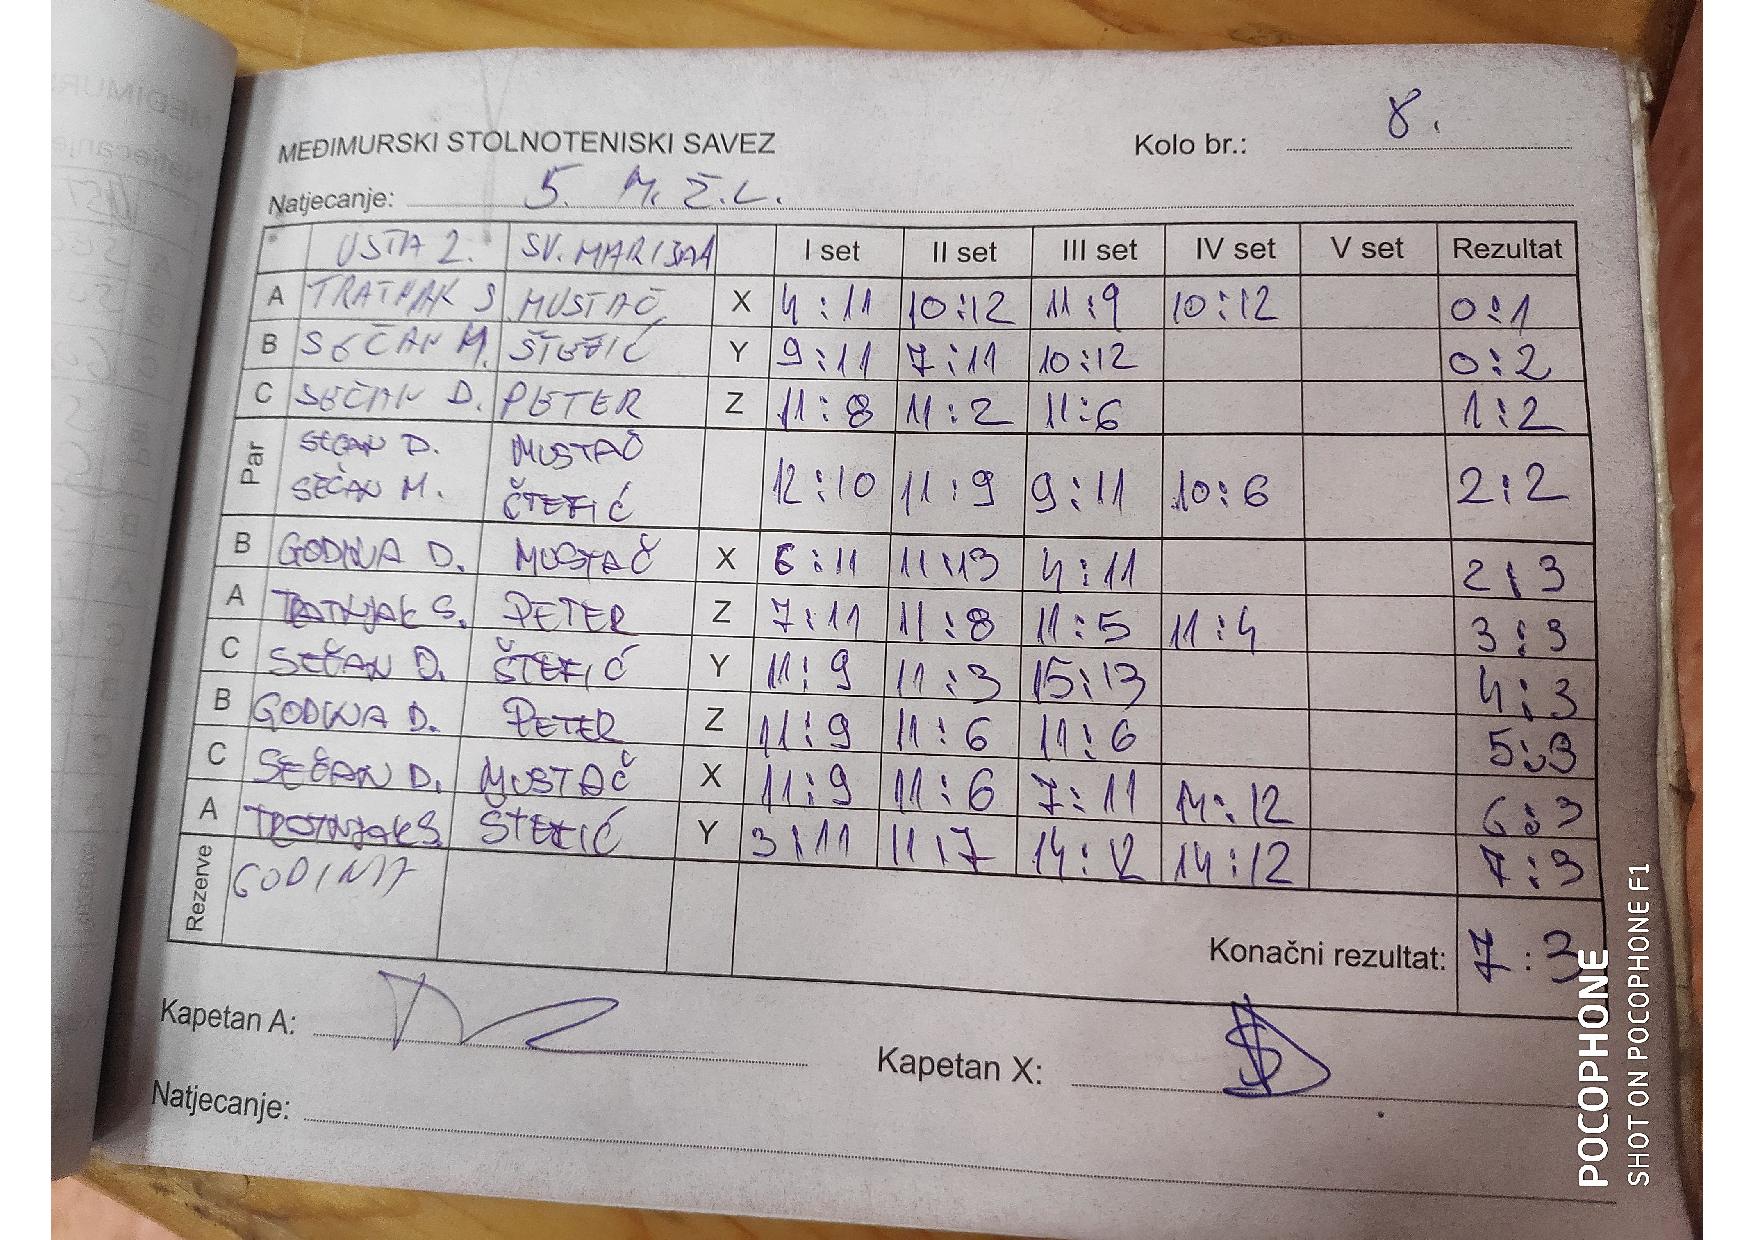 MEĐIMURSKI STOLNOTENISKI SAVEZ Kolo br.: 8.
Natjecanje: 5. M. Ž. L.
USTA 2. SV. MARIJA I set II set III set IV set V set Rezultat
A TRATNAK S MUSTAČ X 4:11 10:12 11:9 10:12 0:1
B SEČAN M. ŠTEFIĆ Y 9:11 7:11 10:12 0:2
C SEČAN D. PETER Z 11:8 11:2 11:6 1:2
Par SEČAN D. MUSTAČ
SEČAN M. ČTEFIĆ 12:10 11:9 9:11 10:6 2:2
B GODINA D. MUSTAČ X 6:11 11:13 4:11 2:3
A TRATNJAK S. PETER Z 7:11 11:8 11:5 11:4 3:3
C SEČAN D. ŠTEFIĆ Y 11:9 11:3 15:13 4:3
B GODINA D. PETER Z 11:9 11:6 11:6 5:3
C SEČAN D. MUSTAČ X 11:9 11:6 7:11 14:12 6:3
A TROTNJAK S. ŠTEFIĆ Y 3:11 11:7 14:12 14:12 7:3
Rezerve GODINA
Konačni rezultat: 7:3
Kapetan A:
Kapetan X:
Natjecanje:
POCOPHONE
SHOT ON POCOPHONE F1